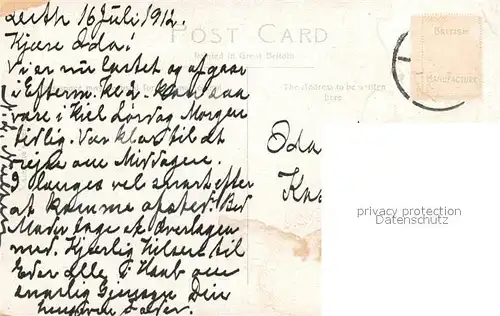 Leith 16 Juli 1912.
Kjære Oda!
Vi er nu lastet og afgaar
i Efterm. Kl 2. kan saa
være i Kiel Lørdag Morgen
tidlig. Vær klar til at
rejse om Middagen.
I længes vel snart efter
at komme afsted. Bed
Moder tage et
med. Kjærlig Hilsen til
Eder alle I Haab om
snarlig Gjensyn Din
hengivne Fader.
POST CARD
Printed in Great Britain
The address to be written
here
BRITISH
MANUFACTURE
Oda
privacy protection
Datenschutz